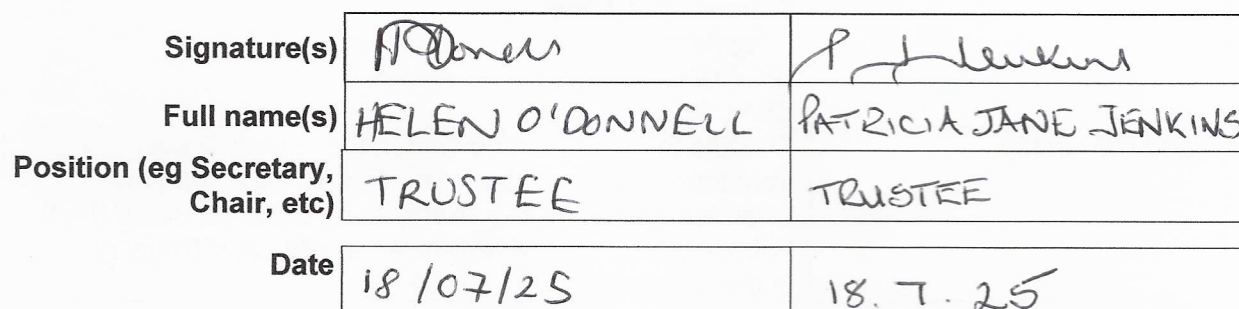 Signature(s) H O'Donnell P J Jenkins
Full name(s) HELEN O'DONNELL PATRICIA JANE JENKINS
Position (eg Secretary,
Chair, etc) TRUSTEE TRUSTEE
Date 18/07/25 18.7.25